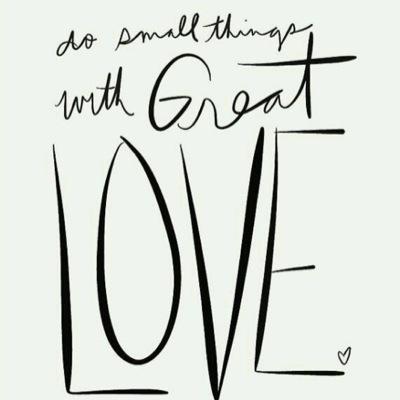 do small things
with Great
LOVE